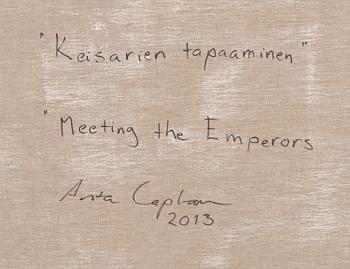 "Keisarien tapaaminen"
"Meeting the Emperors
2013